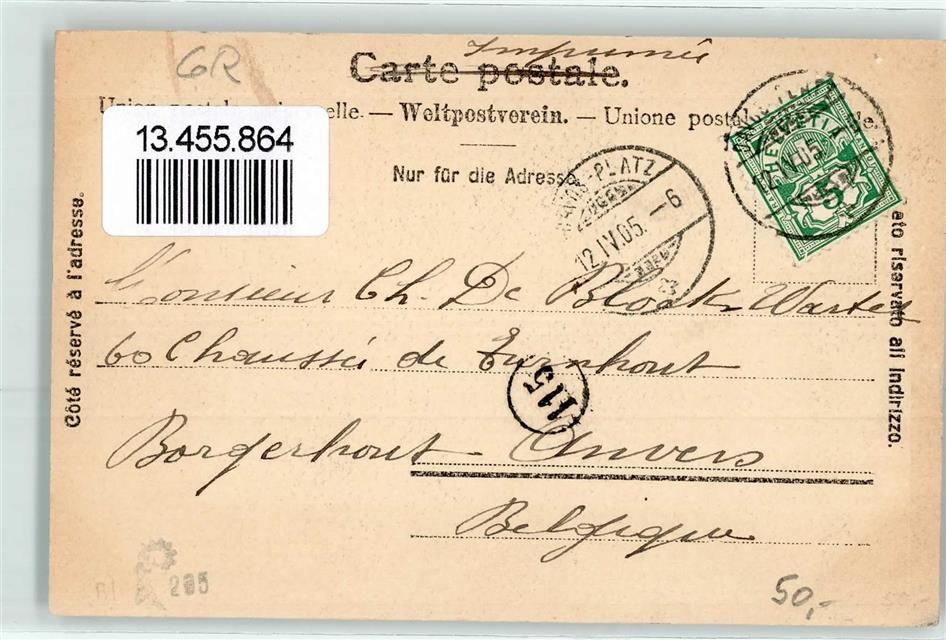 GR
Imprimée
Carte postale.
13.455.864
Union postale universelle. — Weltpostverein. — Unione postale
Nur für die Adresse
PLATZ
12.IV.05. — 6
HELVETIA
12.IV.05.
5
Côté réservé à l'adresse.
riservato all indirizzo.
Monsieur Ch. De Block-Warter
60 Chaussée de Turnhout
115
Borgerhout Anvers
Belgique
205
50,-